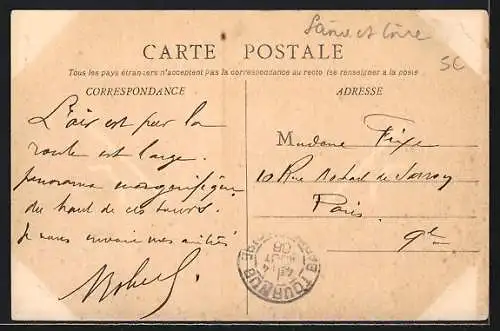 Saône et Loire
SC
CARTE POSTALE
Tous les pays étrangers n'acceptent pas la correspondance au recto (se renseigner à la poste
CORRESPONDANCE
ADRESSE
L'air est pur la
route est large.
panorama magnifique
du haut de ces tours.
Je vous envoie mes amitiés
Robert
Madame
10 Rue de
Paris
9e
TOURNUS